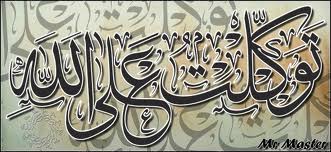 توكلت على الله
Mr Master